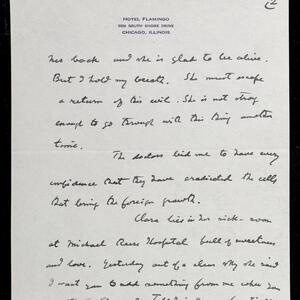 2
HOTEL FLAMINGO
5520 SOUTH SHORE DRIVE
CHICAGO, ILLINOIS
her back and she is glad to be alive.
But I hold my breath. She must escape
a return of this evil. She is not strong
enough to go through with this thing another
time.
The doctors bid me to have every
confidence that they have eradicated the cells
that bring the foreign growth.
Clara lies in her sick-room
at Michael Reese Hospital full of sweetness
and love. Yesterday out of a clear sky she said
I want you to add something from me when you